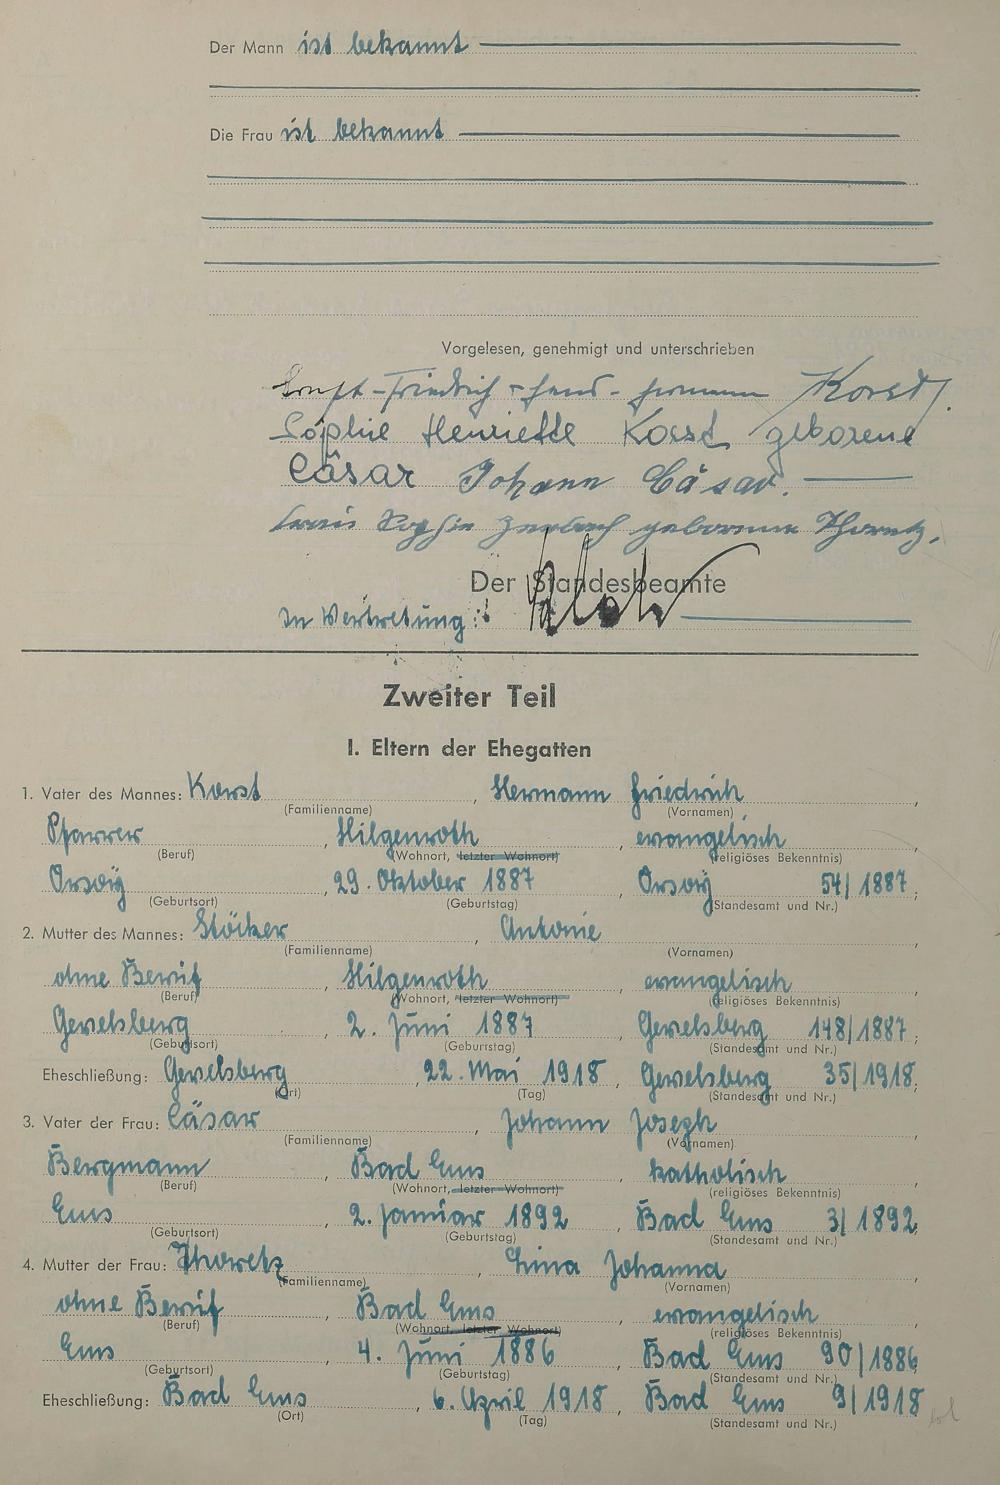 Der Mann ist bekannt
Die Frau ist bekannt
Vorgelesen, genehmigt und unterschrieben
Ernst-Friedrich - - Hermann Korst
Sophie Henriette Korst geborene
Cäsar Johann Cäsar.
Sophie geborene Thoretz.
Der Standesbeamte
In Vertretung:
Zweiter Teil
I. Eltern der Ehegatten
1. Vater des Mannes: Korst, Hermann Friedrich,
(Familienname) (Vornamen)
Pfarrer, Hilgenroth, evangelisch
(Beruf) (Wohnort, letzter Wohnort) (religiöses Bekenntnis)
Orsoy, 29. Oktober 1887, Orsoy 54/1887;
(Geburtsort) (Geburtstag) (Standesamt und Nr.)
2. Mutter des Mannes: Stöcker, Antonie,
(Familienname) (Vornamen)
ohne Beruf, Hilgenroth, evangelisch
(Beruf) (Wohnort, letzter Wohnort) (religiöses Bekenntnis)
Gevelsberg, 2. Juni 1887, Gevelsberg 148/1887;
(Geburtsort) (Geburtstag) (Standesamt und Nr.)
Eheschließung: Gevelsberg, 22. Mai 1918, Gevelsberg 35/1918;
(Ort) (Tag) (Standesamt und Nr.)
3. Vater der Frau: Cäsar, Johann Joseph,
(Familienname) (Vornamen)
Bergmann, Bad Ems, katholisch
(Beruf) (Wohnort, letzter Wohnort) (religiöses Bekenntnis)
Ems, 2. Januar 1892, Bad Ems 3/1892;
(Geburtsort) (Geburtstag) (Standesamt und Nr.)
4. Mutter der Frau: Thoretz, Lina Johanna,
(Familienname) (Vornamen)
ohne Beruf, Bad Ems, evangelisch
(Beruf) (Wohnort, letzter Wohnort) (religiöses Bekenntnis)
Ems, 4. Juni 1886, Bad Ems 90/1886;
(Geburtsort) (Geburtstag) (Standesamt und Nr.)
Eheschließung: Bad Ems, 6. April 1918, Bad Ems 9/1918
(Ort) (Tag) (Standesamt und Nr.)